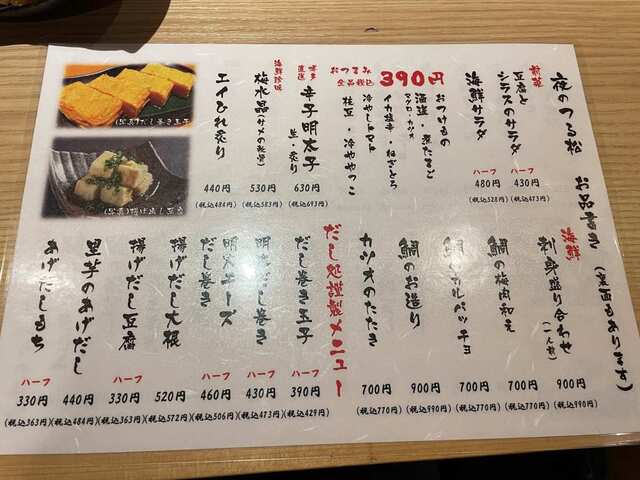 夜のつる松 お品書き(裏面もあります)
前菜
豆腐とシラスのサラダ
ハーフ
430円
(税込473円)
海鮮サラダ
ハーフ
480円
(税込528円)
おつまみ
全品税込
390円
おつけもの
海道・煮たまご
マグロ・カツオ
イカ塩辛・ねぎとろ
冷やしトマト
枝豆・冷ややっこ
博多直送
辛子明太子
生・炙り
630円
(税込693円)
海鮮珍味
梅水晶(サメの軟骨)
530円
(税込583円)
エイひれ炙り
440円
(税込484円)
(写真)だし巻き玉子
(写真)揚げだし豆腐
海鮮
刺身盛り合わせ(一人前)
900円
(税込990円)
鯛の梅肉和え
700円
(税込770円)
鯛のカルパッチョ
700円
(税込770円)
鯛のお造り
900円
(税込990円)
カツオのたたき
700円
(税込770円)
だし処謹製メニュー
だし巻き玉子
ハーフ
390円
(税込429円)
明太だし巻き
ハーフ
430円
(税込473円)
明太チーズだし巻き
ハーフ
460円
(税込506円)
揚げだし大根
520円
(税込572円)
揚げだし豆腐
ハーフ
330円
(税込363円)
里芋のあげだし
440円
(税込484円)
あげだしもち
ハーフ
330円
(税込363円)